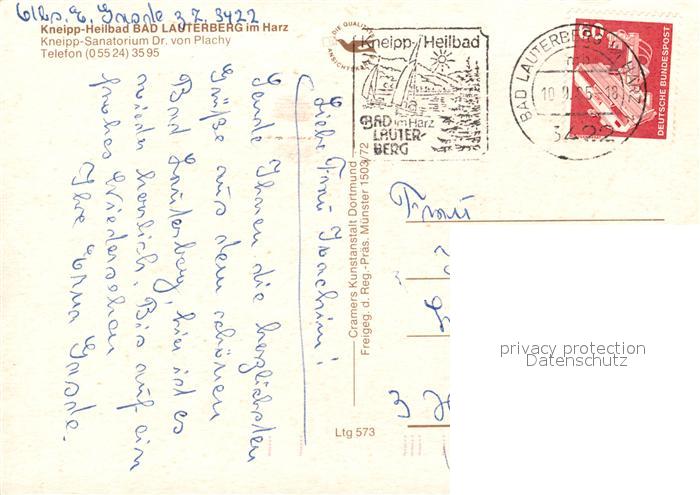 Abs. E. Gnade z. Z. 3422
Kneipp-Heilbad BAD LAUTERBERG im Harz
Kneipp-Sanatorium Dr. von Plachy
Telefon (0 55 24) 35 95
DIE QUALITÄTS
ANSICHTSKARTE
Kneipp-Heilbad
BAD im Harz
LAUTER-
BERG
BAD LAUTERBERG HARZ
3422
60
DEUTSCHE BUNDESPOST
Liebe Frau Joachim!
Sende Ihnen die herzlichsten
Grüße aus dem schönen
Bad Lauterberg, hier ist es
wieder herrlich. Bis auf ein
frohes Wiedersehen
Ihre Erna Gnade.
Cramers Kunstanstalt Dortmund
Freigeg. d. Reg.-Präs. Münster 1503/72
Frau
3
Ltg 573
privacy protection
Datenschutz